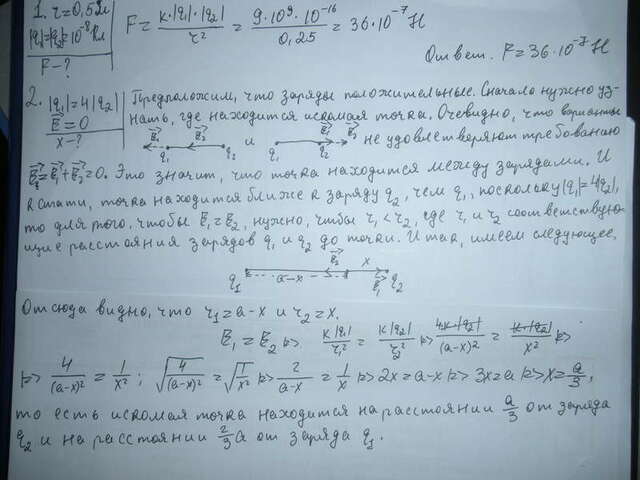 1. r=0,5м
|q₁|=|q₂|=10⁻⁸Кл
F-?
F = k·|q₁|·|q₂| / r² = 9·10⁹·10⁻¹⁶ / 0,25 = 36·10⁻⁷ Н
Ответ. F=36·10⁻⁷ Н
2. |q₁|=4|q₂|
E=0
x-?
Предположим, что заряды положительные. Сначало нужно уз-
нать, где находится искомая точка. Очевидно, что варианты
q₁ q₂ и q₁ q₂ не удовлетворяют требованию
E=E₁+E₂=0. Это значит, что точка находится между зарядами. И
кстати, точка находится ближе к заряду q₂, чем q₁, поскольку |q₁|=4|q₂|,
то для того, чтобы E₁=E₂, нужно, чтобы r₁<r₂, где r₁ и r₂ соответствую-
щие расстояния зарядов q₁ и q₂ до точки. Итак, имеем следующее,
q₁ a-x E₂ x E₁ q₂
Отсюда видно, что r₁=a-x и r₂=x.
E₁=E₂ => k|q₁|/r₁² = k|q₂|/r₂² => 4k|q₂|/(a-x)² = k|q₂|/x² =>
=> 4/(a-x)² = 1/x²; √(4/(a-x)²) = √(1/x²) => 2/(a-x) = 1/x => 2x=a-x => 3x=a => x=a/3,
то есть искомая точка находится на расстоянии a/3 от заряда
q₂ и на расстоянии 2/3 a от заряда q₁.